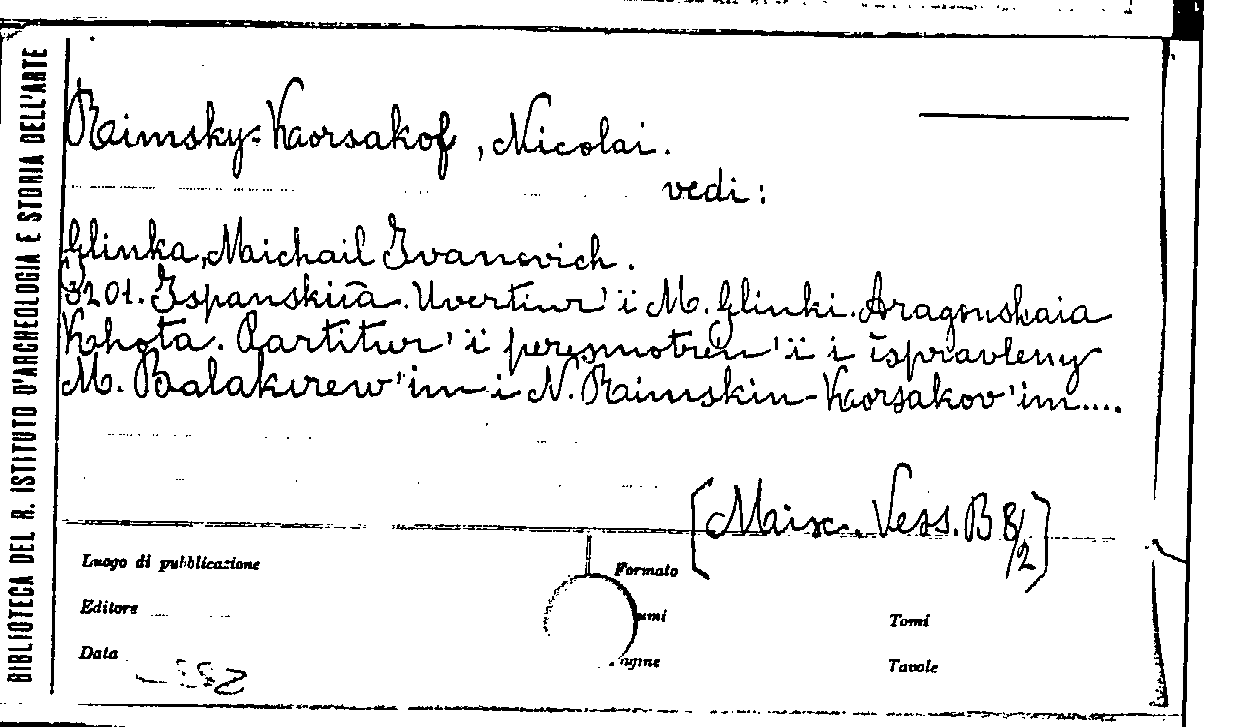 BIBLIOTECA DEL R. ISTITUTO D'ARCHEOLOGIA E STORIA DELL'ARTE
Rimsky=Korsakof, Nicolai.
vedi:
Glinka, Michail Ivanovich.
3201. Ispanskiia. Uvertiur'ï M. Glinki. Aragonskaia
Khota. Partitur'ï peresmotren'ï i ispravleny
M. Balakirew'im i N. Rimskin-Korsakov'im....
[Misc. Vess. B 8/2]
Luogo di pubblicazione
Formato
Editore
umi
Tomi
Data
agine
Tavole